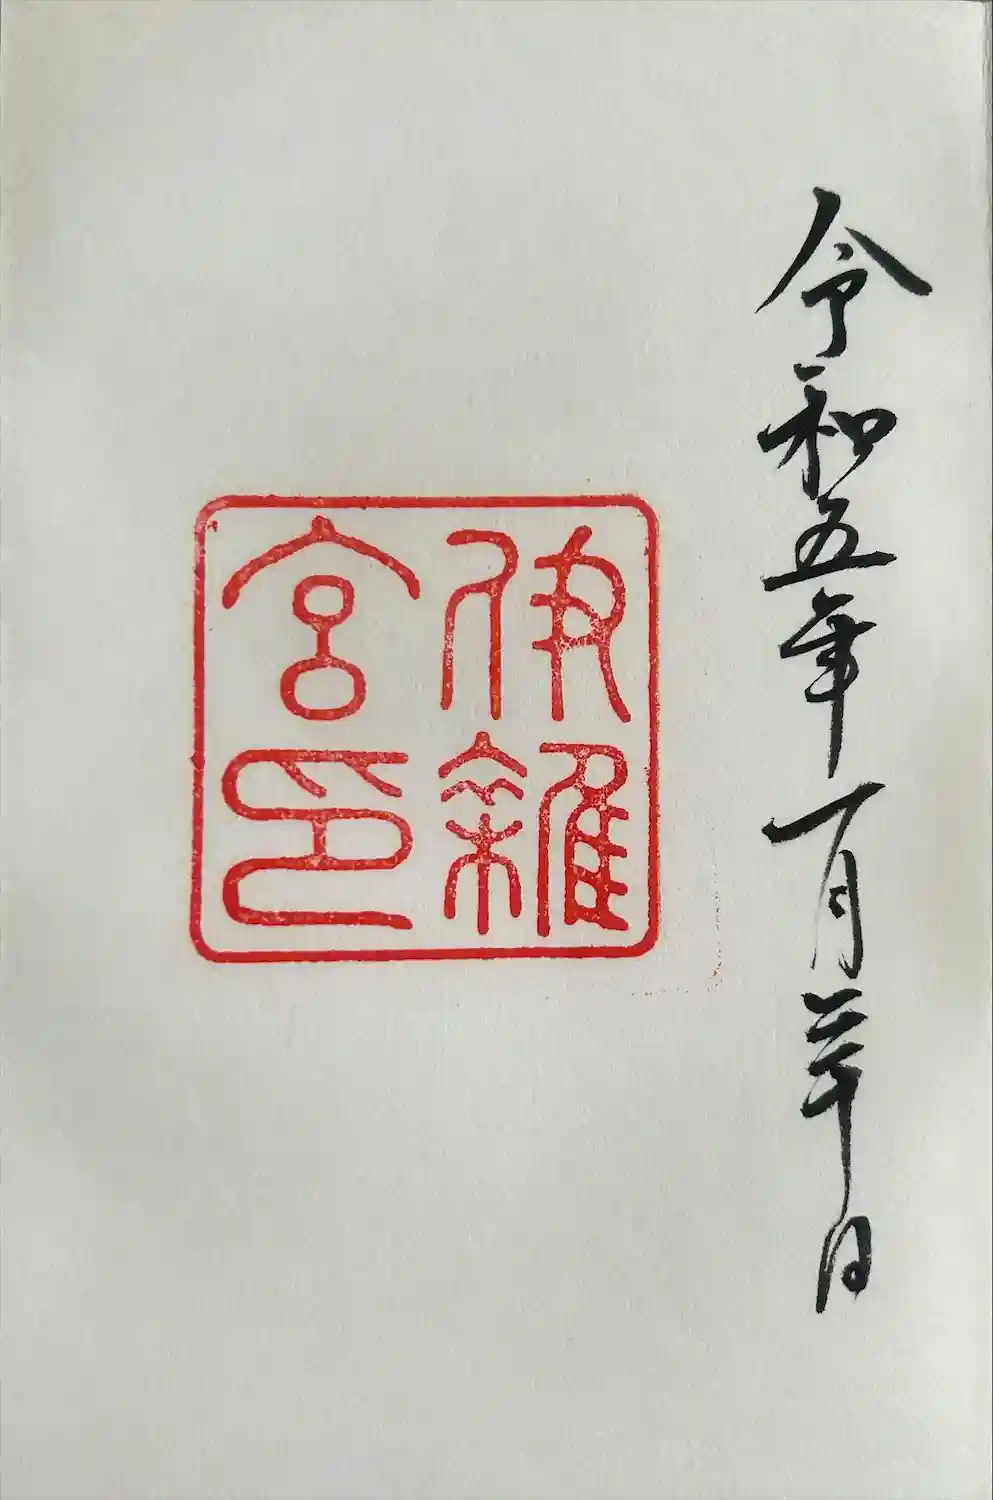 令和五年一月三十日
伊雜
宮印